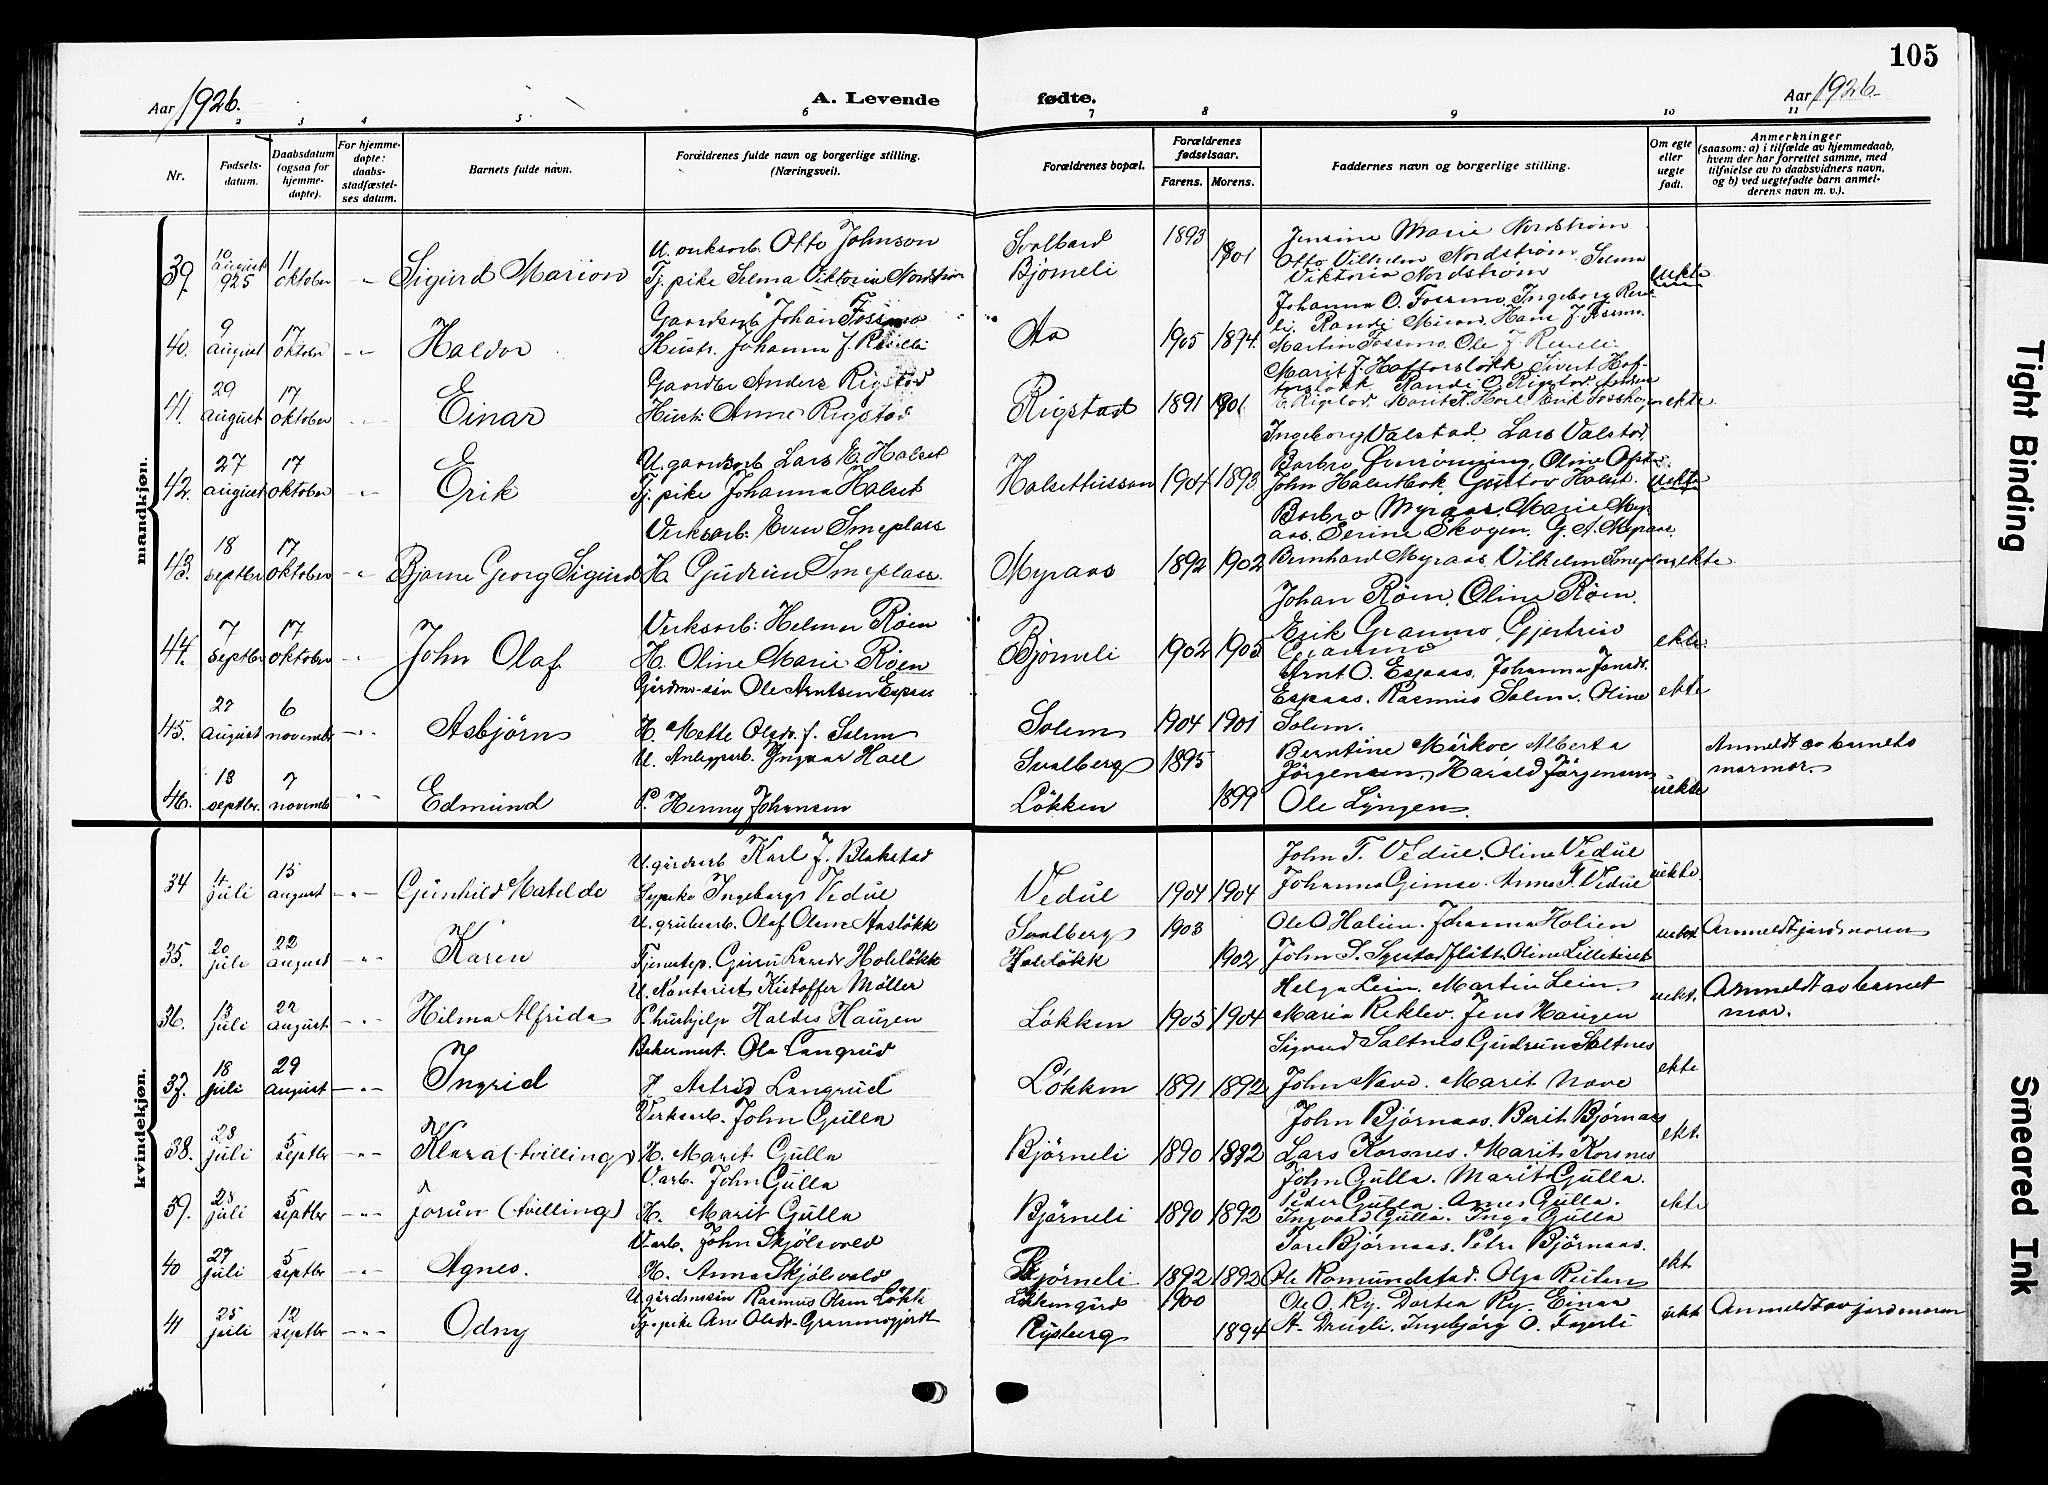 105
Aar 1926.
A. Levende fødte.
Aar 1926.
2 3 4 5 6 7 8 9 10 11
Nr.
Fødsels-
datum.
Daabsdatum
(ogsaa for
hjemme-
døpte).
For hjemme-
døpte:
daabs-
stadfæstel-
ses datum.
Barnets fulde navn.
Forældrenes fulde navn og borgerlige stilling.
(Næringsvei).
Forældrenes bopæl.
Forældrenes
fødselsaar.
Farens. Morens.
Faddernes navn og borgerlige stilling.
Om egte
eller
uegte
født.
Anmerkninger
(saasom: a) i tilfælde av hjemmedaab,
hvem der har forrettet samme, med
tilføielse av to daabsvidners navn,
og b) ved uegtefødte barn anmel-
derens navn m. v.).
mandkjøn.
39. 10 august 925 11 oktober Sigurd Marion
U. Otto Johnson
Tj. pike Selma Viktoria Nordstrøm
Svalbard 1893
Bjørneli 1901
Jensine Marie Nordstrøm
Otto Vilhelm Nordstrøm Selma
Viktoria Nordstrøm uekte
40. 9 august 17 oktober Haldor
Gaardarb Johan Fossmo
Hustr. Johanna J.
Aa 1905 1894.
Johanna O. Fossmo, Ingeborg
Hans J. Fossmo.
Martin Fossmo. Ole J.
41. 29 august 17 oktober Einar
Gaardbr Anders Rigstad
Hustr: Anne Rigstad
Rigstad 1891 1901
Marit J. Haltorsløkk Sivert Hal-
torsløkk Randi O. Rigstad
E. Rigstad. Erik ekte
42. 27 august 17 oktober Erik
U. gaardsarb Lars E. Halset
Tj. pike Johanna Halset
Halsethusson 1904 1893
Ingeborg Valstad. Lars Valstad.
Barbro Oline
John Gustav Halset. uekte
43. 18 septbr 17 oktober Bjarne Georg Sigurd
Verksarb: Even Smeplass
H. Gudrun Smeplass
Myraas 1892 1902
Barbro Myraas. Marie Myr-
aas. Serine Skogen. G. A. Myraas.
Bernhard Myraas Vilhelm Smeplass ekte
44. 7 septbr 17 oktober John Olaf
Verksarb: Helmer Røen
H. Oline Marie Røen
Bjørneli 1902 1905
Johan Røen. Oline Røen.
Erik Granmo Gjertrud
Granmo ekte
45. 27 august 6 novemb Asbjørn
Gårdmssøn Ole Arntsen Espaas
H. Mette Olsdr. f. Solem
Solem 1904 1901
Arnt O. Espaas, Johanna Jonsdr.
Espaas. Rasmus Solem. Oline
Solem. ekte
46. 13 septbr. 7 novemb Edmund
U. Anleggsarb. Ingvar Hoel
P. Henny Johansen
Svalberg 1895
Løkken 1899
Berntine Alberta
Jørgensen, Harald Jørgensen
Ole Lyngen. uekte
Anmeldt av barnets
marmor.
kvindekjøn.
34 4 juli 15 august Gunhild Matilde
U. gårdsarb Karl J. Blokstad
Ingeborg Vedul
Vedul 1904 1904
John T. Vedul. Oline Vedul
Johanna Gimse. Anna T. Vedul uekte.
35. 20 juli 22 august Karen
U. grubearb. Olaf Olsen Aasløkk
Tjenestep. Guru Larsdr Holsløkk
Svalberg 1903
Holsløkk 1902
Ole O Halien. Johanna Halien
John S. Systadflått. Oline Lilletiset uekt.
Anmeldt jordmoren
36. 13 juli 22 august Hilma Alfrida
U. Kontorist Kistoffer Møller
P. hushjelp Haldis Haugen
Løkken 1905 1904
Helga Lein. Martin Lein
Maria Reklev. Jens Haugen uekt.
Anmeldt av barnet
mor.
37. 18 juli 29 august Ingrid
Bakermest. Ola Langrud
H. Astrid Langrud
Løkken 1891 1892
Sigurd Saltnes Gudrun Saltnes
John Nave. Marit Nave ekte
38. 28 juli 5 septbr Klara (tvilling)
Verksarb. John Gulla
H. Marit Gulla
Bjørneli 1890 1892
John Bjørnaas. Berit Bjørnaas
Lars Korsnes. Marit Korsnes ekt.
39. 28 juli 5 septbr Jorun (tvilling)
V. arb. John Gulla
H. Marit Gulla
Bjørneli 1890 1892
John Gulla. Marit Gulla.
Peder Gulla. Gulla.
Ingvald Gulla. Inga Gulla ekte
40 27 juli 5 septbr Agnes.
V. arb. John Skjølsvold
H. Anna Skjølsvold
Bjørneli 1892 1892
Tore Bjørnaas. Petra Bjørnaas.
Ole Romundstad. Olga Reitan ekt
41 25 juli 12 septbr Odny
U. gårdmssøn Rasmus Olsen Løkk
Tj. pike Ane Olsdr. Granmogjerdt
Løkkengård 1900
Rysberg 1894
Ole O. Ry. Dortea Ry. Einar
A. Drugli. Ingebjørg O. Fagerli uekt
Anmeldt av jordmoren
Tight Binding
Smeared Ink